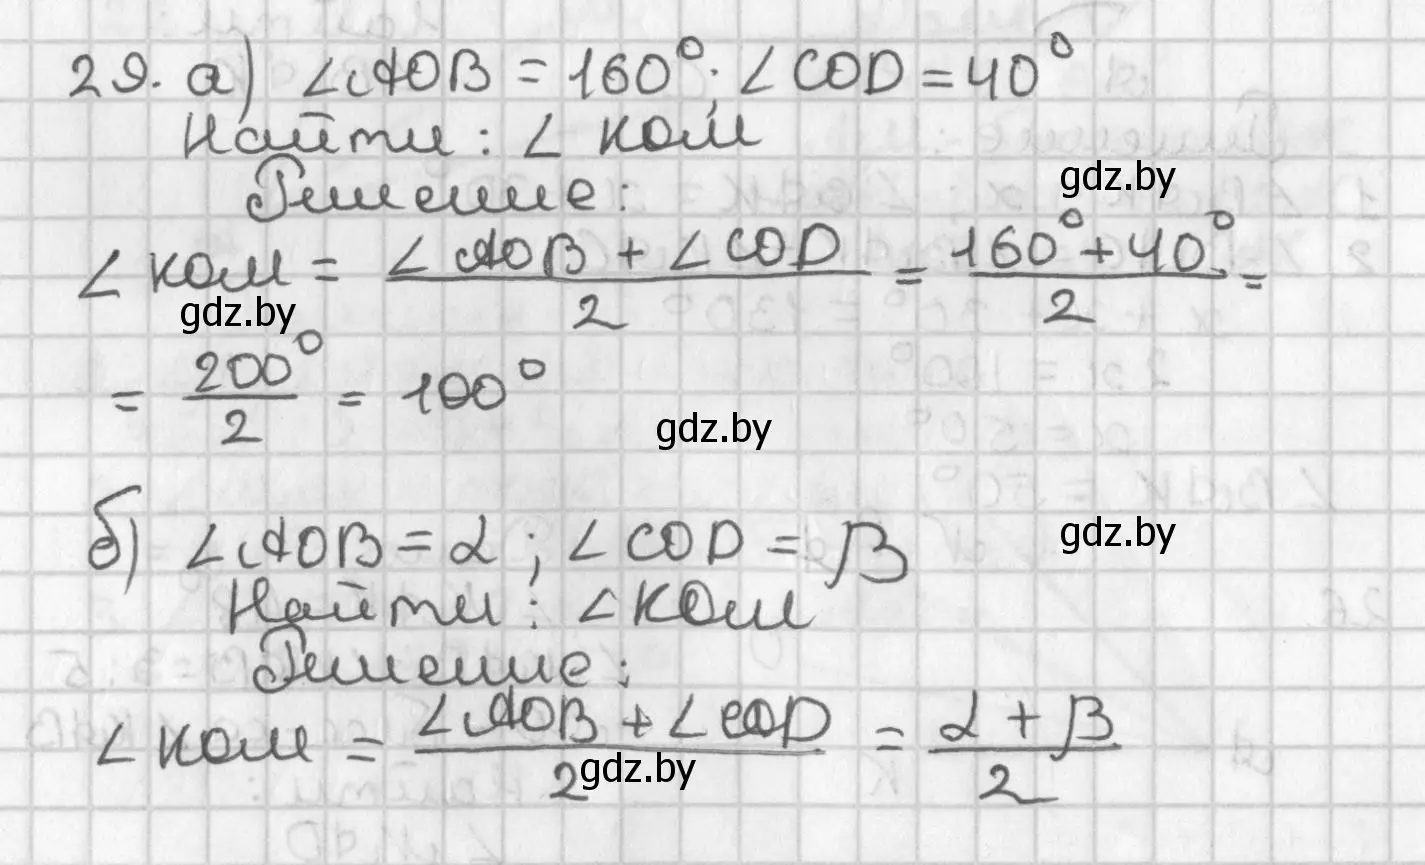 29. а) ∠AOB = 160°; ∠COD = 40°
Найти: ∠ KOM
Решение:
gdz.by
∠ KOM = (∠AOB + ∠COD)/2 = (160° + 40°)/2 =
gdz.by
= 200°/2 = 100°
gdz.by
б) ∠AOB = α; ∠COD = β
gdz.by
Найти: ∠KOM
Решение:
∠ KOM = (∠AOB + ∠COD)/2 = (α + β)/2
gdz.by